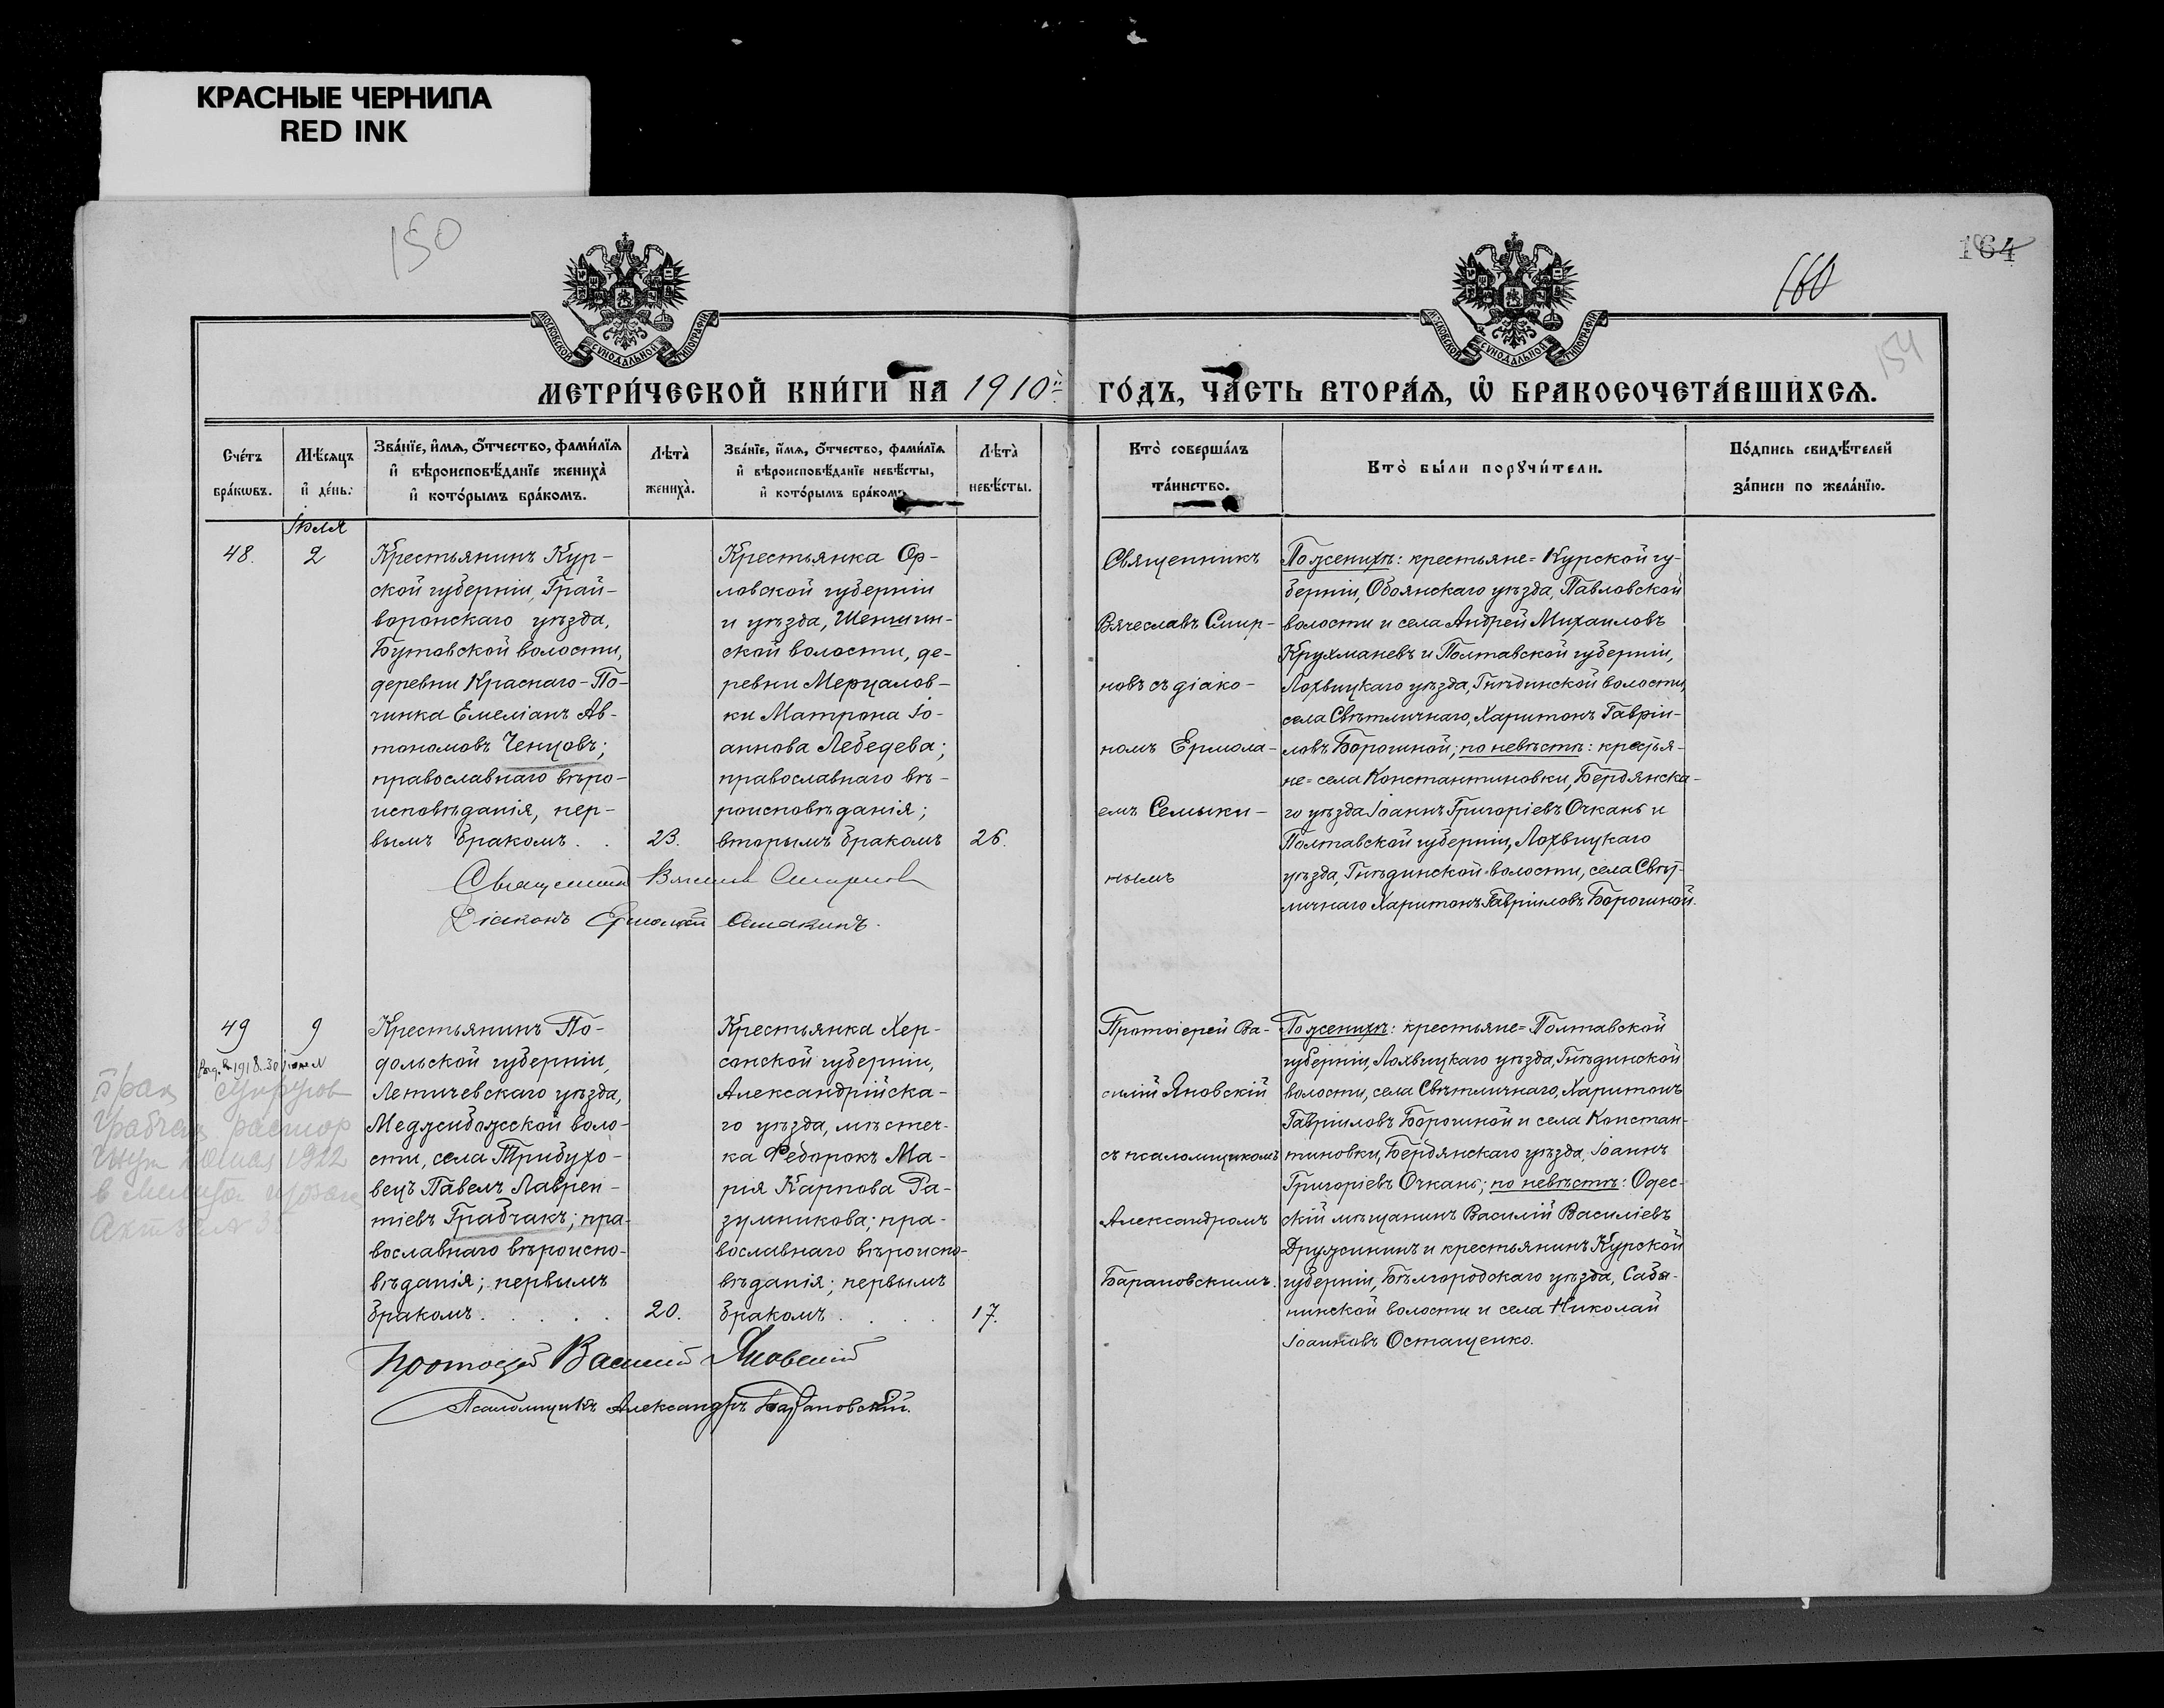 КРАСНЫЕ ЧЕРНИЛА
RED INK
150
164
160
154
МОСКОВСКОЙ СУНОДАЛЬНОЙ ТИПОГРАФІИ
МОСКОВСКОЙ СУНОДАЛЬНОЙ ТИПОГРАФІИ
МЕТРИ́ЧЕСКОЙ КНИ́ГИ НА 1910й ГО́ДЪ, ЧА́СТЬ ВТОРА́Ѧ, Ѡ҆ БРАКОСОЧЕТА́ВШИХСѦ.
Сче́тъ бра́кѡвъ.
Мѣ́сяцъ и҆ де́нь.
Зва́нїе, и҆́мѧ, ѻ҆́тчество, фами́лїѧ
и҆ вѣроисповѣ́данїе жениха̀
и҆ кото́рымъ бра́комъ.
Лѣта̀ жениха̀.
Зва́нїе, и҆́мѧ, ѻ҆́тчество, фами́лїѧ
и҆ вѣроисповѣ́данїе невѣ́сты,
и҆ кото́рымъ бра́комъ
Лѣта̀ невѣ́сты.
Кто̀ соверша́лъ та́инство.
Кто̀ бы́ли порꙋчи́тели.
По́дпись свидѣ́телей
за́писи по жела́нїю.
Іюля
48.
2
Крестьянинъ Кур-
ской губерніи, Грай-
воронскаго уѣзда,
Бутовской волости,
деревни Краснаго-По-
чинка Емеліанъ Ав-
тономовъ Ченцовъ;
православнаго вѣро-
исповѣданія, пер-
вымъ бракомъ. .
23.
Крестьянка Ор-
ловской губерніи
и уѣзда, Шеншин-
ской волости, де-
ревни Мерцалов-
ки Матрона Іо-
аннова Лебедева;
православнаго вѣ-
роисповѣданія;
вторымъ бракомъ
26.
Священникъ
Вячеславъ Смир-
новъ съ діако-
номъ Ермола-
емъ Семыки-
нымъ
По женихѣ: крестьяне= Курской гу-
берніи, Обоянскаго уѣзда, Павловской
волости и села Андрей Михаиловъ
Крухманевъ и Полтавской губерніи,
Лохвицкаго уѣзда, Гнѣдинской волости,
села Свѣтличнаго, Харитонъ Гавріи-
ловъ Борошной; по невѣстѣ: крестья-
не= села Константиновки, Бердянска-
го уѣзда Іоаннъ Григоріевъ Очкань и
Полтавской губерніи, Лохвицкаго
уѣзда, Гнѣдинской волости, села Свѣт-
личнаго Харитонъ Гавріиловъ Борошной.
Священникъ Вячеславъ Смирновъ
Діаконъ Ермолай
49
9
1918
Крестьянинъ По-
дольской губерніи,
Летичевскаго уѣзда,
Меджибожской воло-
сти, села Трибухо-
вецъ Павелъ Лаврен-
тіевъ Грабчакъ; пра-
вославнаго вѣроиспо-
вѣданія; первымъ
бракомъ. . . . .
20.
Крестьянка Хер-
сонской губерніи,
Александрійска-
го уѣзда, мѣстеч-
ка Федорокъ Ма-
рія Карпова Ра-
зумникова; пра-
вославнаго вѣроиспо-
вѣданія; первымъ
бракомъ. . . .
17.
Протоіерей Ва-
силій Яновскій
съ псаломщикомъ
Александромъ
Барановскимъ.
По женихѣ: крестьяне= Полтавской
губерніи, Лохвицкаго уѣзда, Гнѣдинской
волости, села Свѣтличнаго, Харитонъ
Гавріиловъ Борошной и села Констан-
тиновки, Бердянскаго уѣзда, Іоаннъ
Григоріевъ Очкань; по невѣстѣ: Одес-
скій мѣщанинъ Василій Василіевъ
Дружининъ и крестьянинъ Курской
губерніи, Бѣлгородскаго уѣзда, Сабы-
нинской волости и села Николай
Іоанновъ Остащенко.
брак супругов
Грабчак растор
1922
Протоіерей Василій Яновскій
Псаломщикъ Александръ Барановскій.